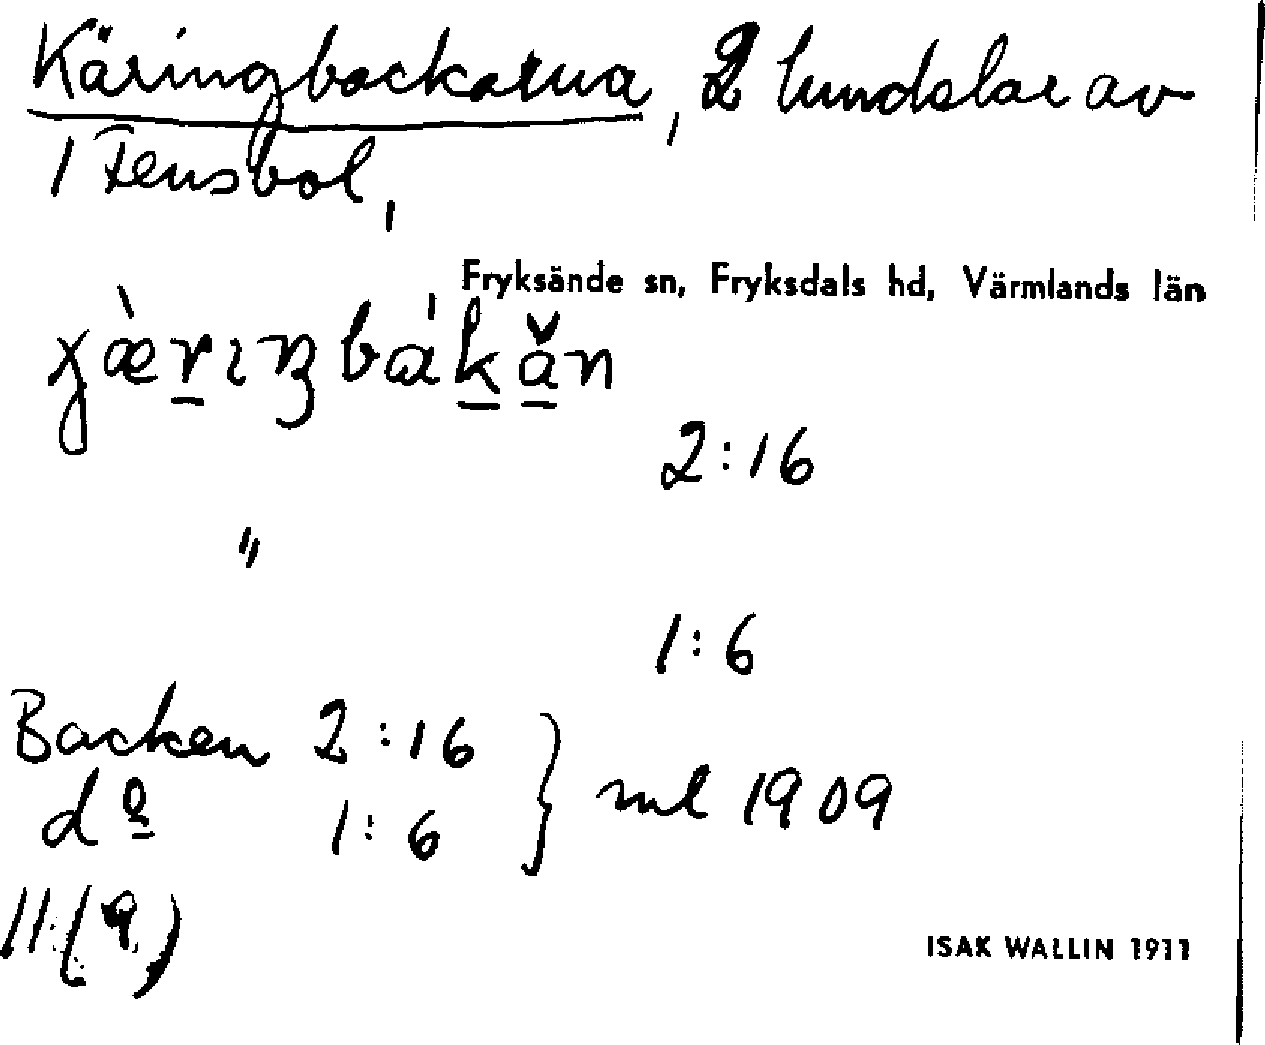 Käringbackarna, 2 lundelar av
1 Fensbol,
Fryksände sn, Fryksdals hd, Värmlands län
2:16
"
1:6
Backen 2:16
do 1:6 } ml 1909
11 (9)
ISAK WALLIN 1911